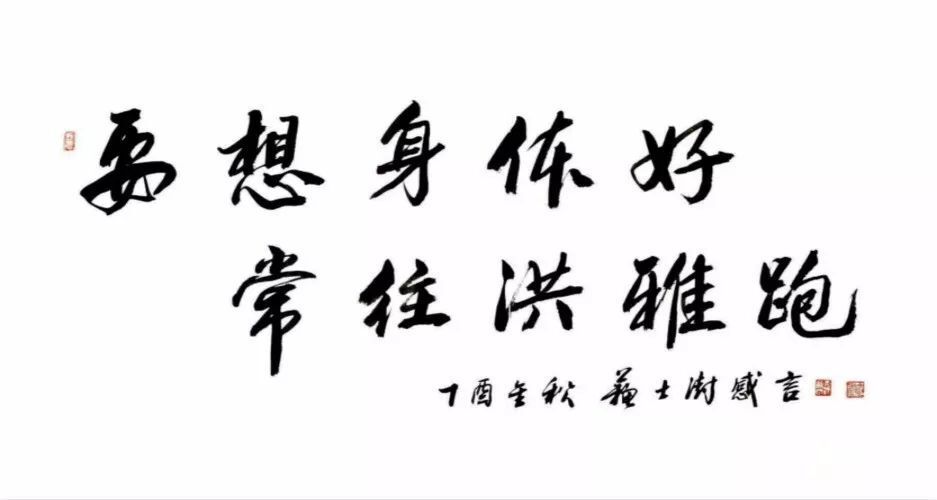 要想身体好
常往洪雅跑
丁酉金秋 苏士澍感言